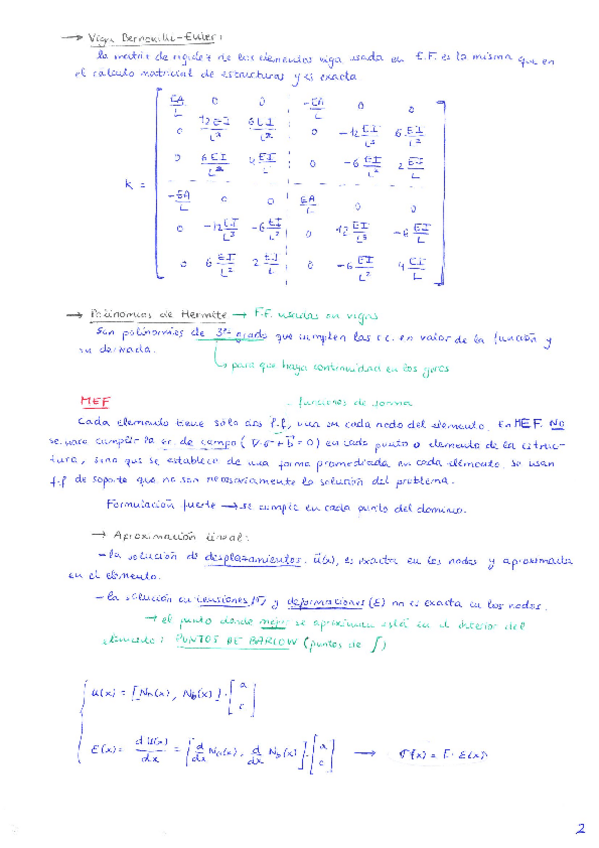 → Viga Bernouilli-Euler:
la matriz de rigidez de los elementos viga usada en E.F. es la misma que en
el calculo matricial de estructuras y es exacta
K =
EA/L 0 0 -EA/L 0 0
0 12EI/L³ 6EI/L² 0 -12 EI/L³ 6 EI/L²
0 6EI/L² 4EI/L 0 -6 EI/L² 2 EI/L
-EA/L 0 0 EA/L 0 0
0 -12 EI/L³ -6 EI/L² 0 12 EI/L³ -6 EI/L²
0 6 EI/L² 2 EI/L 0 -6 EI/L² 4 EI/L
→ Polinomios de Hermite → F.F. usadas en vigas
Son polinomios de 3er grado que cumplen las c.c. en valor de la función y
su derivada.
para que haya continuidad en los giros
MEF
funciones de forma
Cada elemento tiene sólo dos f.f, una en cada nodo del elemento. En MEF no
se hace cumplir la ec. de campo (∇·σ + b = 0) en cada punto o elemento de la estruc-
tura, sino que se establece de una forma promediada en cada elemento. Se usan
f.f de soporte que no son necesariamente la solución del problema.
Formulación fuerte → se cumple en cada punto del dominio.
→ Aproximación lineal:
- la solución de desplazamientos, u(x), es exacta en los nodos y aproximada
en el elemento.
- la solución en tensiones (σ) y deformaciones (ε) no es exacta en los nodos.
→ el punto donde mejor se aproximan está en el interior del
elemento: PUNTOS DE BARLOW (puntos de ∫)
u(x) = [Na(x), Nb(x)]·[a c]
ε(x) = d u(x)/dx = [d/dx Na(x), d/dx Nb(x)]·[a c] → σ(x) = E·ε(x)
2